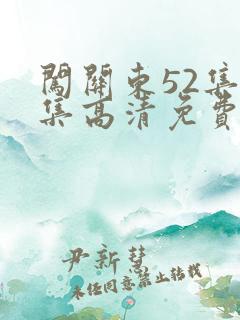 闖關東52集
集高清免費
尹新慧
未经同意禁止转载